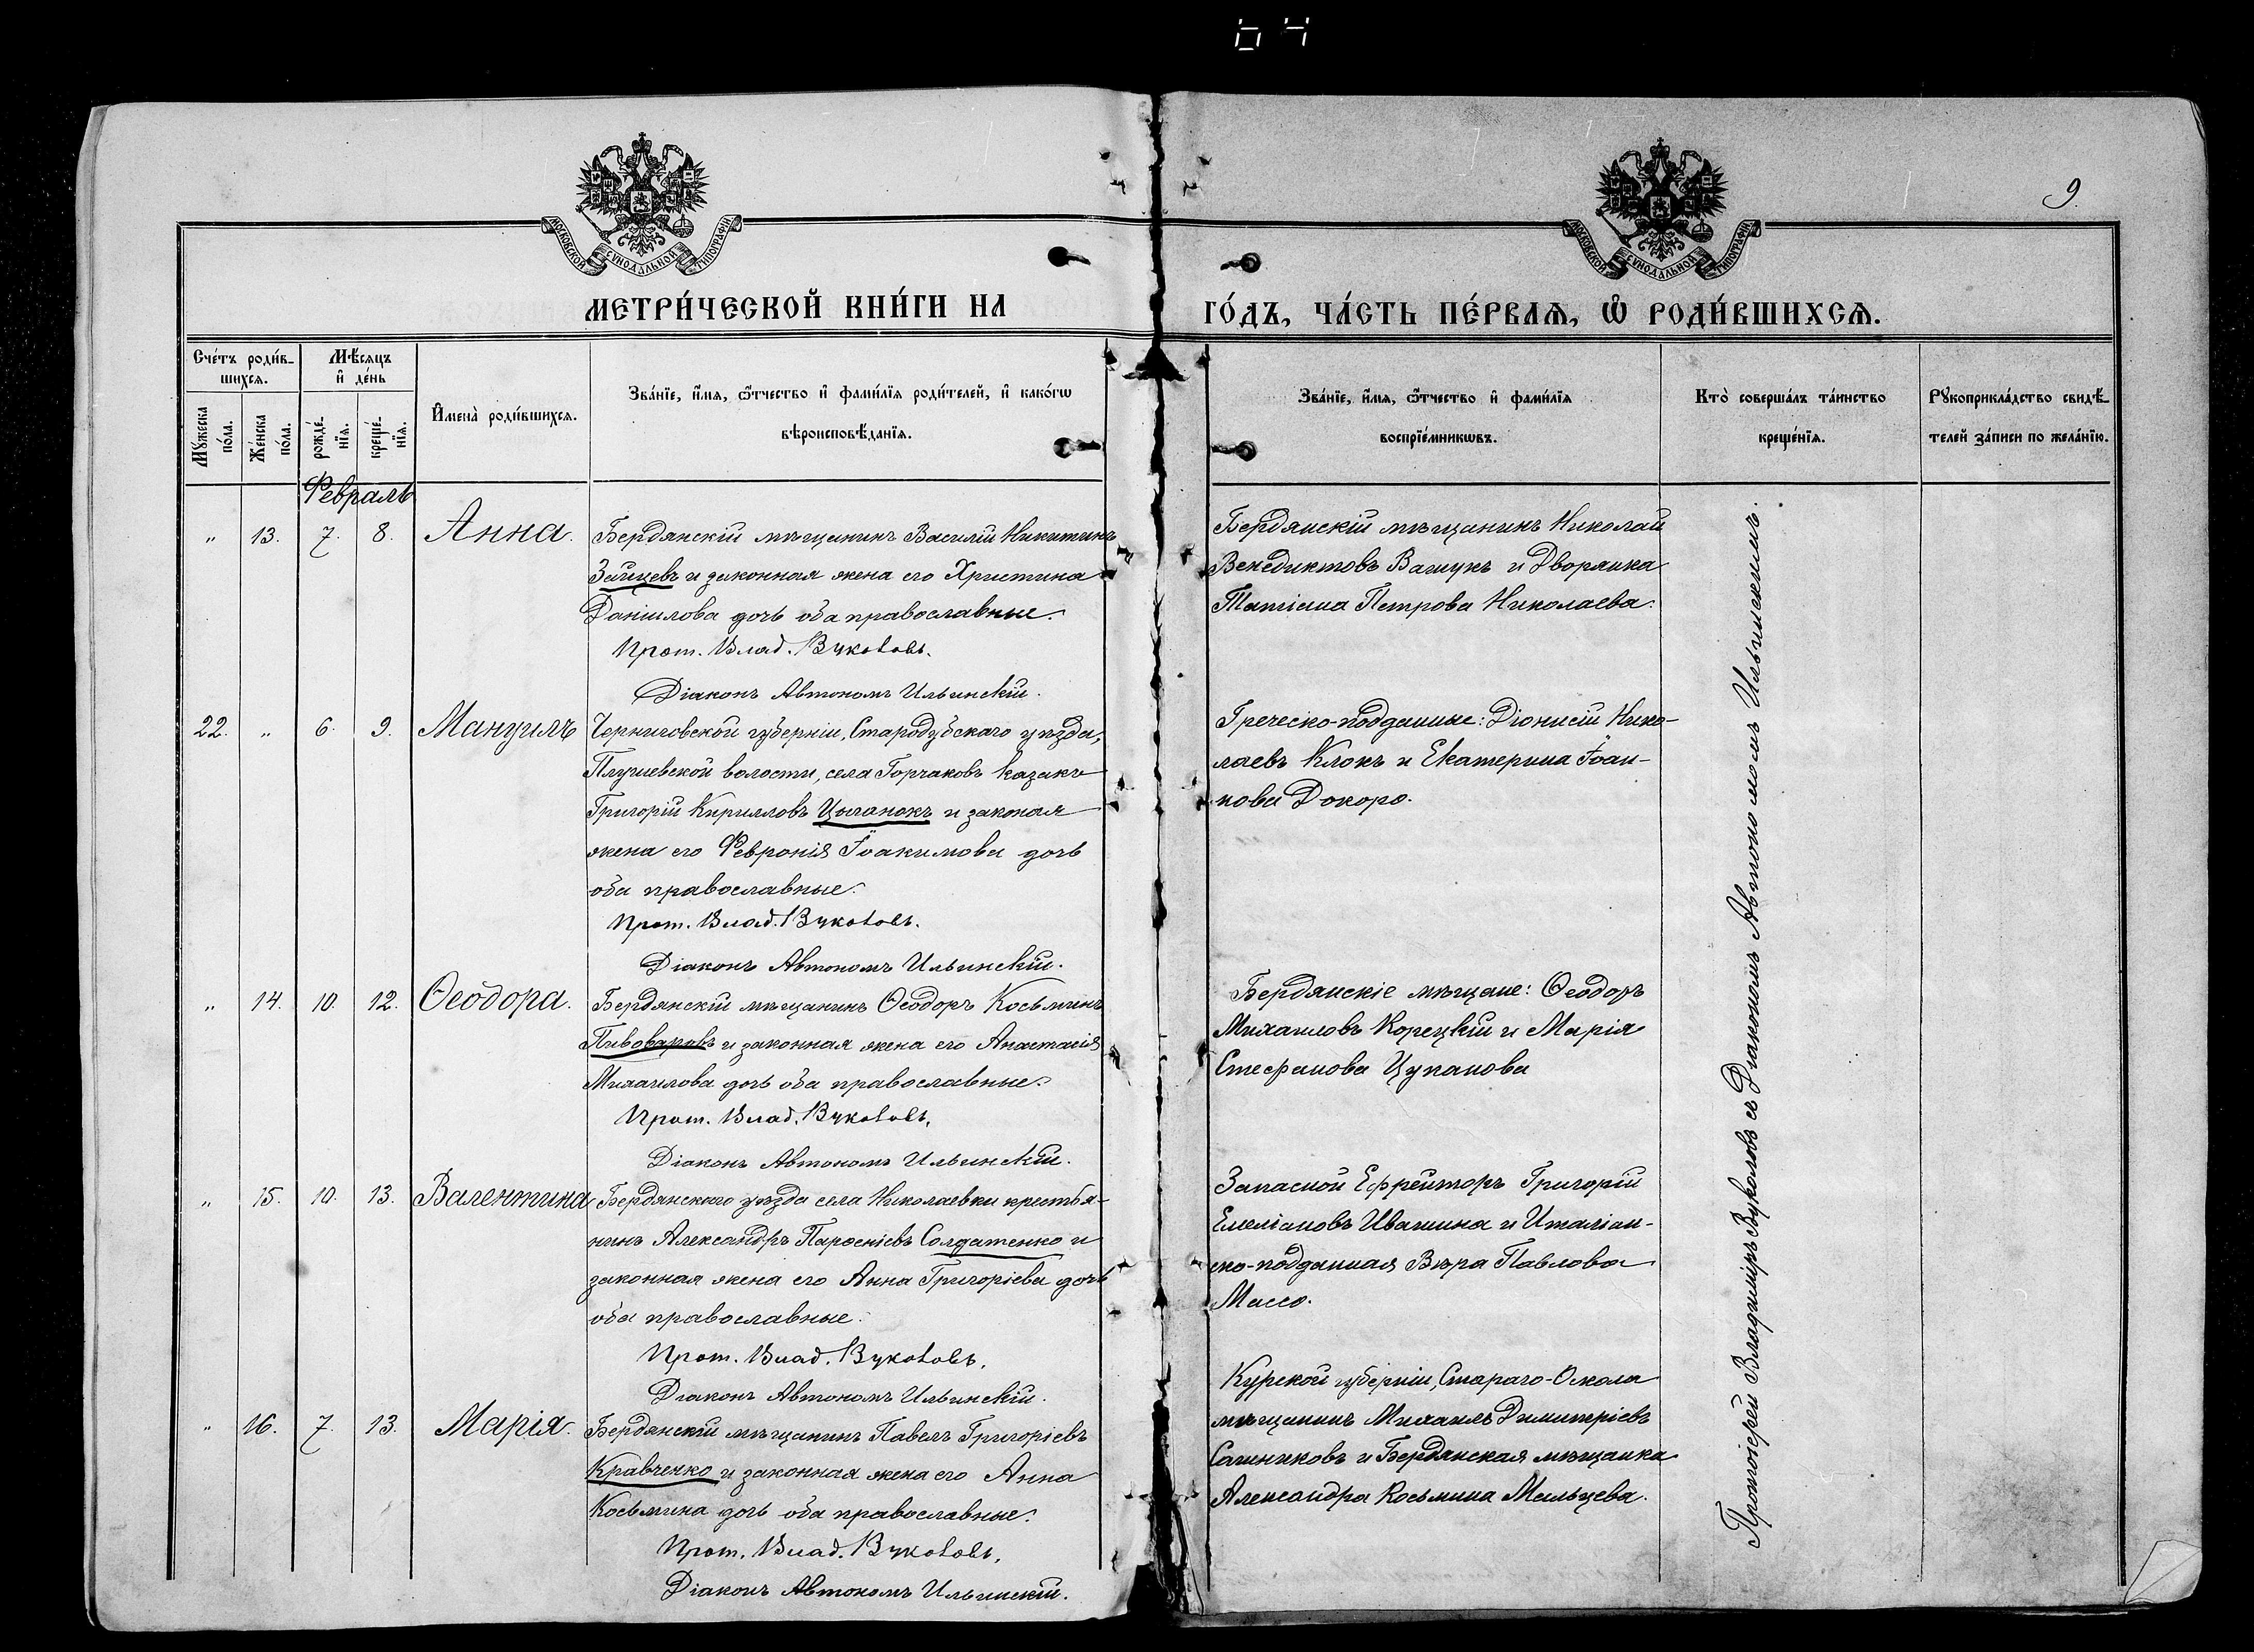 64
9.
МОСКОВСКОЙ СѴНОДАЛЬНОЙ ТИПОГРАФІИ
МОСКОВСКОЙ СѴНОДАЛЬНОЙ ТИПОГРАФІИ
МЕТРИ́ЧЕСКОЙ КНИ́ГИ НА ГО́ДЪ, ЧА́СТЬ ПЕ́РВАѦ, Ѡ҆ РОДИ́ВШИХСѦ.
Сче́тъ роди́в-
шихсѧ.
Мѣ́сѧцъ
и҆ де́нь
Мꙋ́жеска
по́ла.
Же́нска
по́ла.
рожде́-
нїѧ.
креще́-
нїѧ.
И҆мена̀ роди́вшихсѧ.
Зва́нїе, и҆́мѧ, ѻ҆́тчество и҆ фами́лїѧ роди́телей, и҆ како́гѡ
вѣроисповѣ́данїѧ.
Зва́нїе, и҆́мѧ, ѻ҆́тчество и҆ фами́лїѧ
воспрїе́мникѡвъ.
Кто̀ соверша́лъ та́инство
креще́нїѧ.
Рꙋкоприкла́дство свидѣ́-
телей за́писи по жела́нїю.
Февраль
" 13. 7. 8. Анна.
Бердянскій мѣщанинъ Василій Никитинъ
Зайцевъ и законная жена его Христина
Даніилова дочь оба православные.
Прот. Влад. Вуколовъ.
Діаконъ Автономъ Ильинскій.
Бердянскій мѣщанинъ Николай
Венедиктовъ Вашукъ и Дворянка
Татіана Петрова Николаева.
22. " 6. 9. Мануилъ
Черниговской губерніи, Стародубскаго уѣзда,
волости, села Горчаковъ казакъ
Григорій Кирилловъ Цыганокъ и законая
жена его Февронія Іоакимова дочь
оба православные.
Прот. Влад. Вуколовъ.
Діаконъ Автономъ Ильинскій.
Греческо-подданные: Діонисій Нико-
лаевъ Клокъ и Екатерина Іоан-
нова Докоро.
" 14. 10. 12. Ѳеодора.
Бердянскій мѣщанинъ Ѳеодоръ Косьминъ
Пивоваровъ и законная жена его Анастасія
Михаилова дочь оба православные.
Прот. Влад. Вуколовъ.
Діаконъ Автономъ Ильинскій.
Бердянскіе мѣщане: Ѳеодоръ
Михаиловъ Корецкій и Марія
Стефанова Цуканова
" 15. 10. 13. Валентина
Бердянскаго уѣзда села Николаевки крестья-
нинъ Александръ Парѳеніевъ Солдатенко и
законная жена его Анна Григоріева дочь
оба православные.
Прот. Влад. Вуколовъ.
Діаконъ Автономъ Ильинскій.
Запасной Ефрейторъ Григорій
Емеліановъ Ивашина и Италіан-
ско-подданная Вѣра Павлова
Массо.
" 16. 7. 13. Марія.
Бердянскій мѣщанинъ Павелъ Григоріевъ
Кравченко и законная жена его Анна
Косьмина дочь оба православные.
Прот. Влад. Вуколовъ.
Діаконъ Автономъ Ильинскій.
Курской губерніи, Стараго-Оскола
мѣщанинъ Михаилъ Димитріевъ
Сашниковъ и Бердянская мѣщанка
Александра Косьмина Мальцева.
Протоіерей Владиміръ Вуколовъ съ Діакономъ Автономомъ Ильинскимъ.